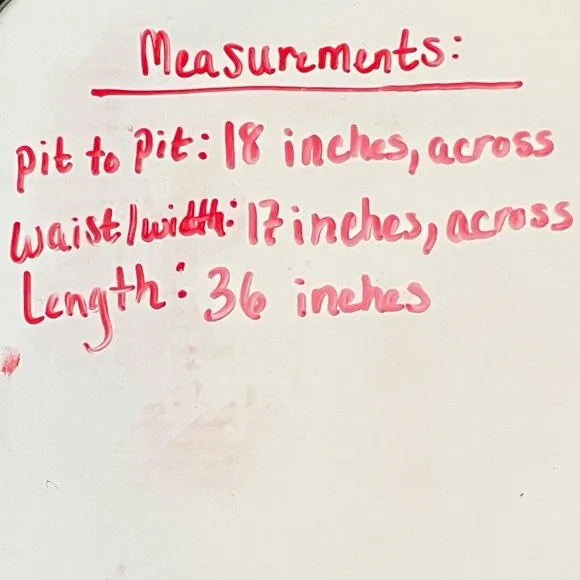 Measurements:
pit to pit: 18 inches, across
waist/width: 17 inches, across
Length: 36 inches